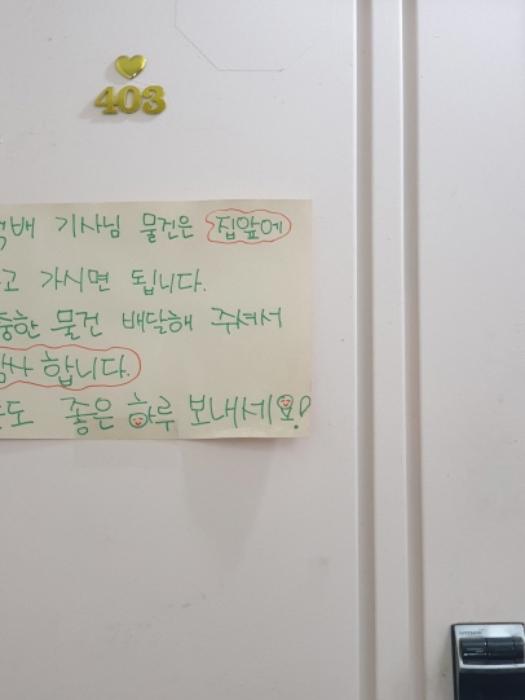 403
기사님 물건은 집앞에
가시면 됩니다.
물건 배달해 주셔서
합니다.
좋은 하루 보내세요!